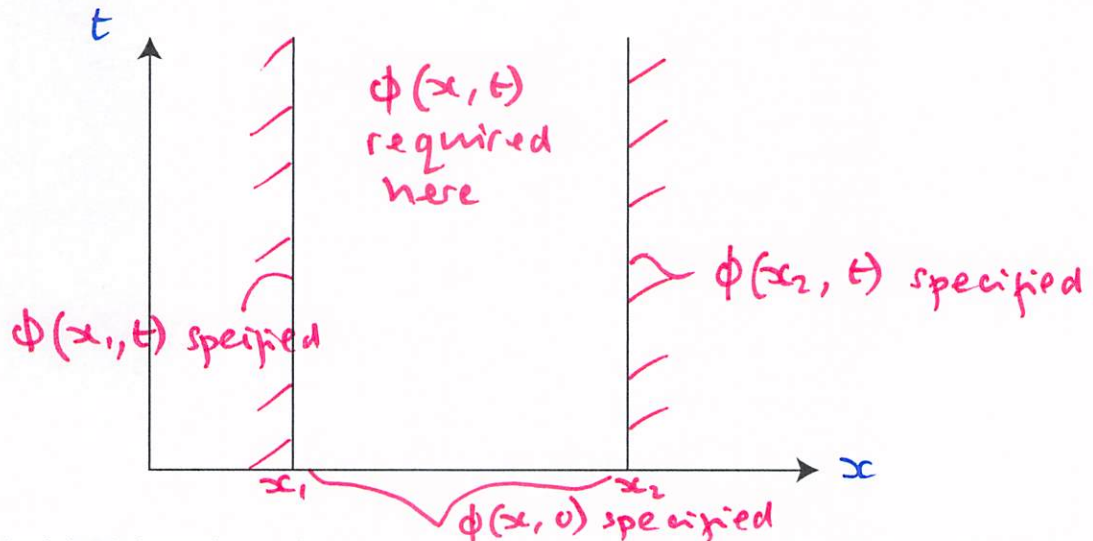 t
ϕ(x, t)
required
here
ϕ(x₂, t) specified
ϕ(x₁, t) specified
x₁
x₂
x
ϕ(x, 0) specified